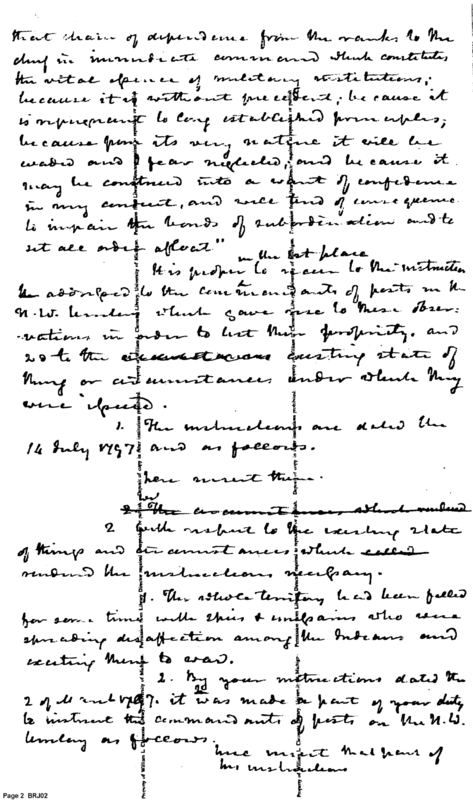 that chain of dependence from the ranks to the
chief in immediate command which constitutes
the vital essence of military institutions;
because it is without precedent; because it
is repugnant to long established principles;
because from its very nature it will be
evaded and I fear neglected; and because it
may be construed into a want of confidence
in my conduct, and will tend of consequence
to impair the bonds of subordination and to
set all order afloat"
in the 1st place
It is proper to recur to the instruction
addressed to the commandants of posts in the
N.W. territory which gave rise to these obser-
vations in order to test their propriety. and
2d to the existing state of
things or circumstances under which they
were issued.
1. The instructions are dated the
14 July 1797 and as follows.
here insert them.
2 The circumstances which rendered
2 with respect to the existing state
of things and circumstances which called
rendered the instructions necessary.
1. The whole territory had been filled
for some time with spies & who were
spreading disaffection among the Indians and
exciting them to war.
2. By your instructions dated the
2 of March 1797. it was made a part of your duty
to instruct the commandants of posts on the N.W.
territory as follows.
here insert that part of
his instructions
Page 2 BRJ02